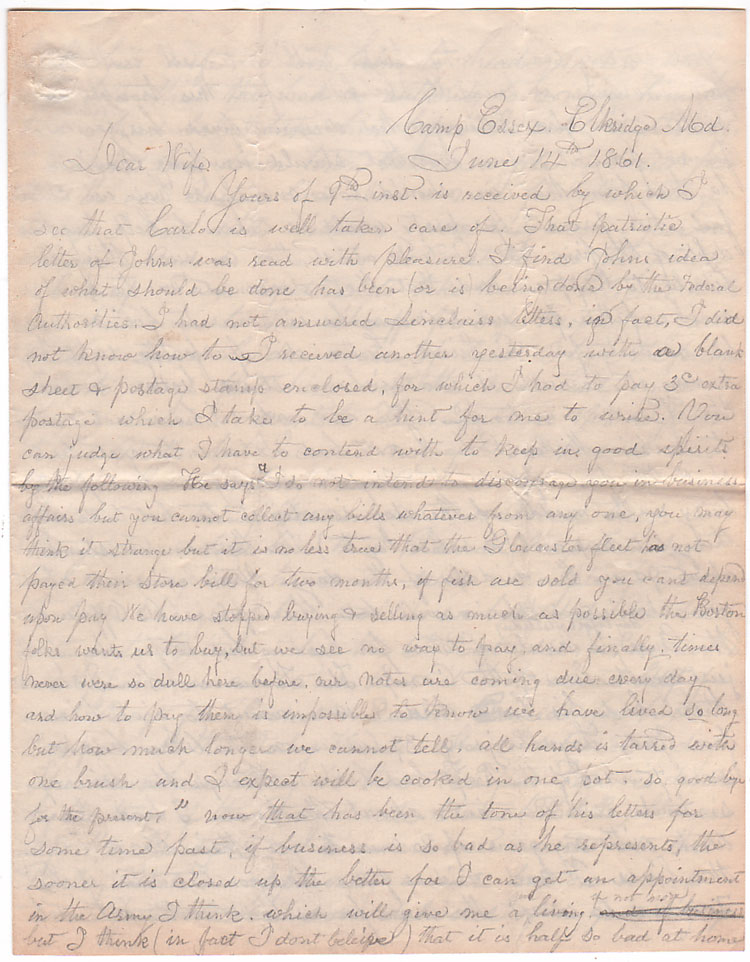 Camp Essex. Elkridge Md.
Dear Wife June 14th 1861.
Yours of 9th inst. is received by which I
see that Carlo is well taken care of. That patriotic
letter of Johns was read with pleasure. I find Johns idea
of what should be done has been (or is being) done by the Federal
Authorities. I had not answered Sinclairs letters, in fact, I did
not know how to. I recieved another yesterday with a blank
sheet & postage stamp enclosed, for which I had to pay 3c extra
postage which I take to be a hint for me to write. You
can judge what I have to contend with to keep in good spirits
by the following He says "I do not intend to discourage you in business
affairs but you cannot collect any bills whatever from any one, you may
think it strange but it is no less true that the Gloucester fleet has not
payed their store bill for two months, if fish are sold you cant depend
upon pay We have stopped buying & selling as much as possible the Boston
folks wants us to buy, but we see no way to pay and finally. times
never were so dull here before. our notes are coming due every day
and how to pay them is impossible to know we have lived so long
but how much longer we cannot tell. all hands is tarred with
one brush and I expect will be cooked in one pot. so good bye
for the present." now that has been the tone of his letters for
some time past, if business is so bad as he represents, the
sooner it is closed up the better for I can get an appointment
in the Army I think. which will give me a living if not more and if business
but I think (in fact I dont believe) that it is half so bad at home